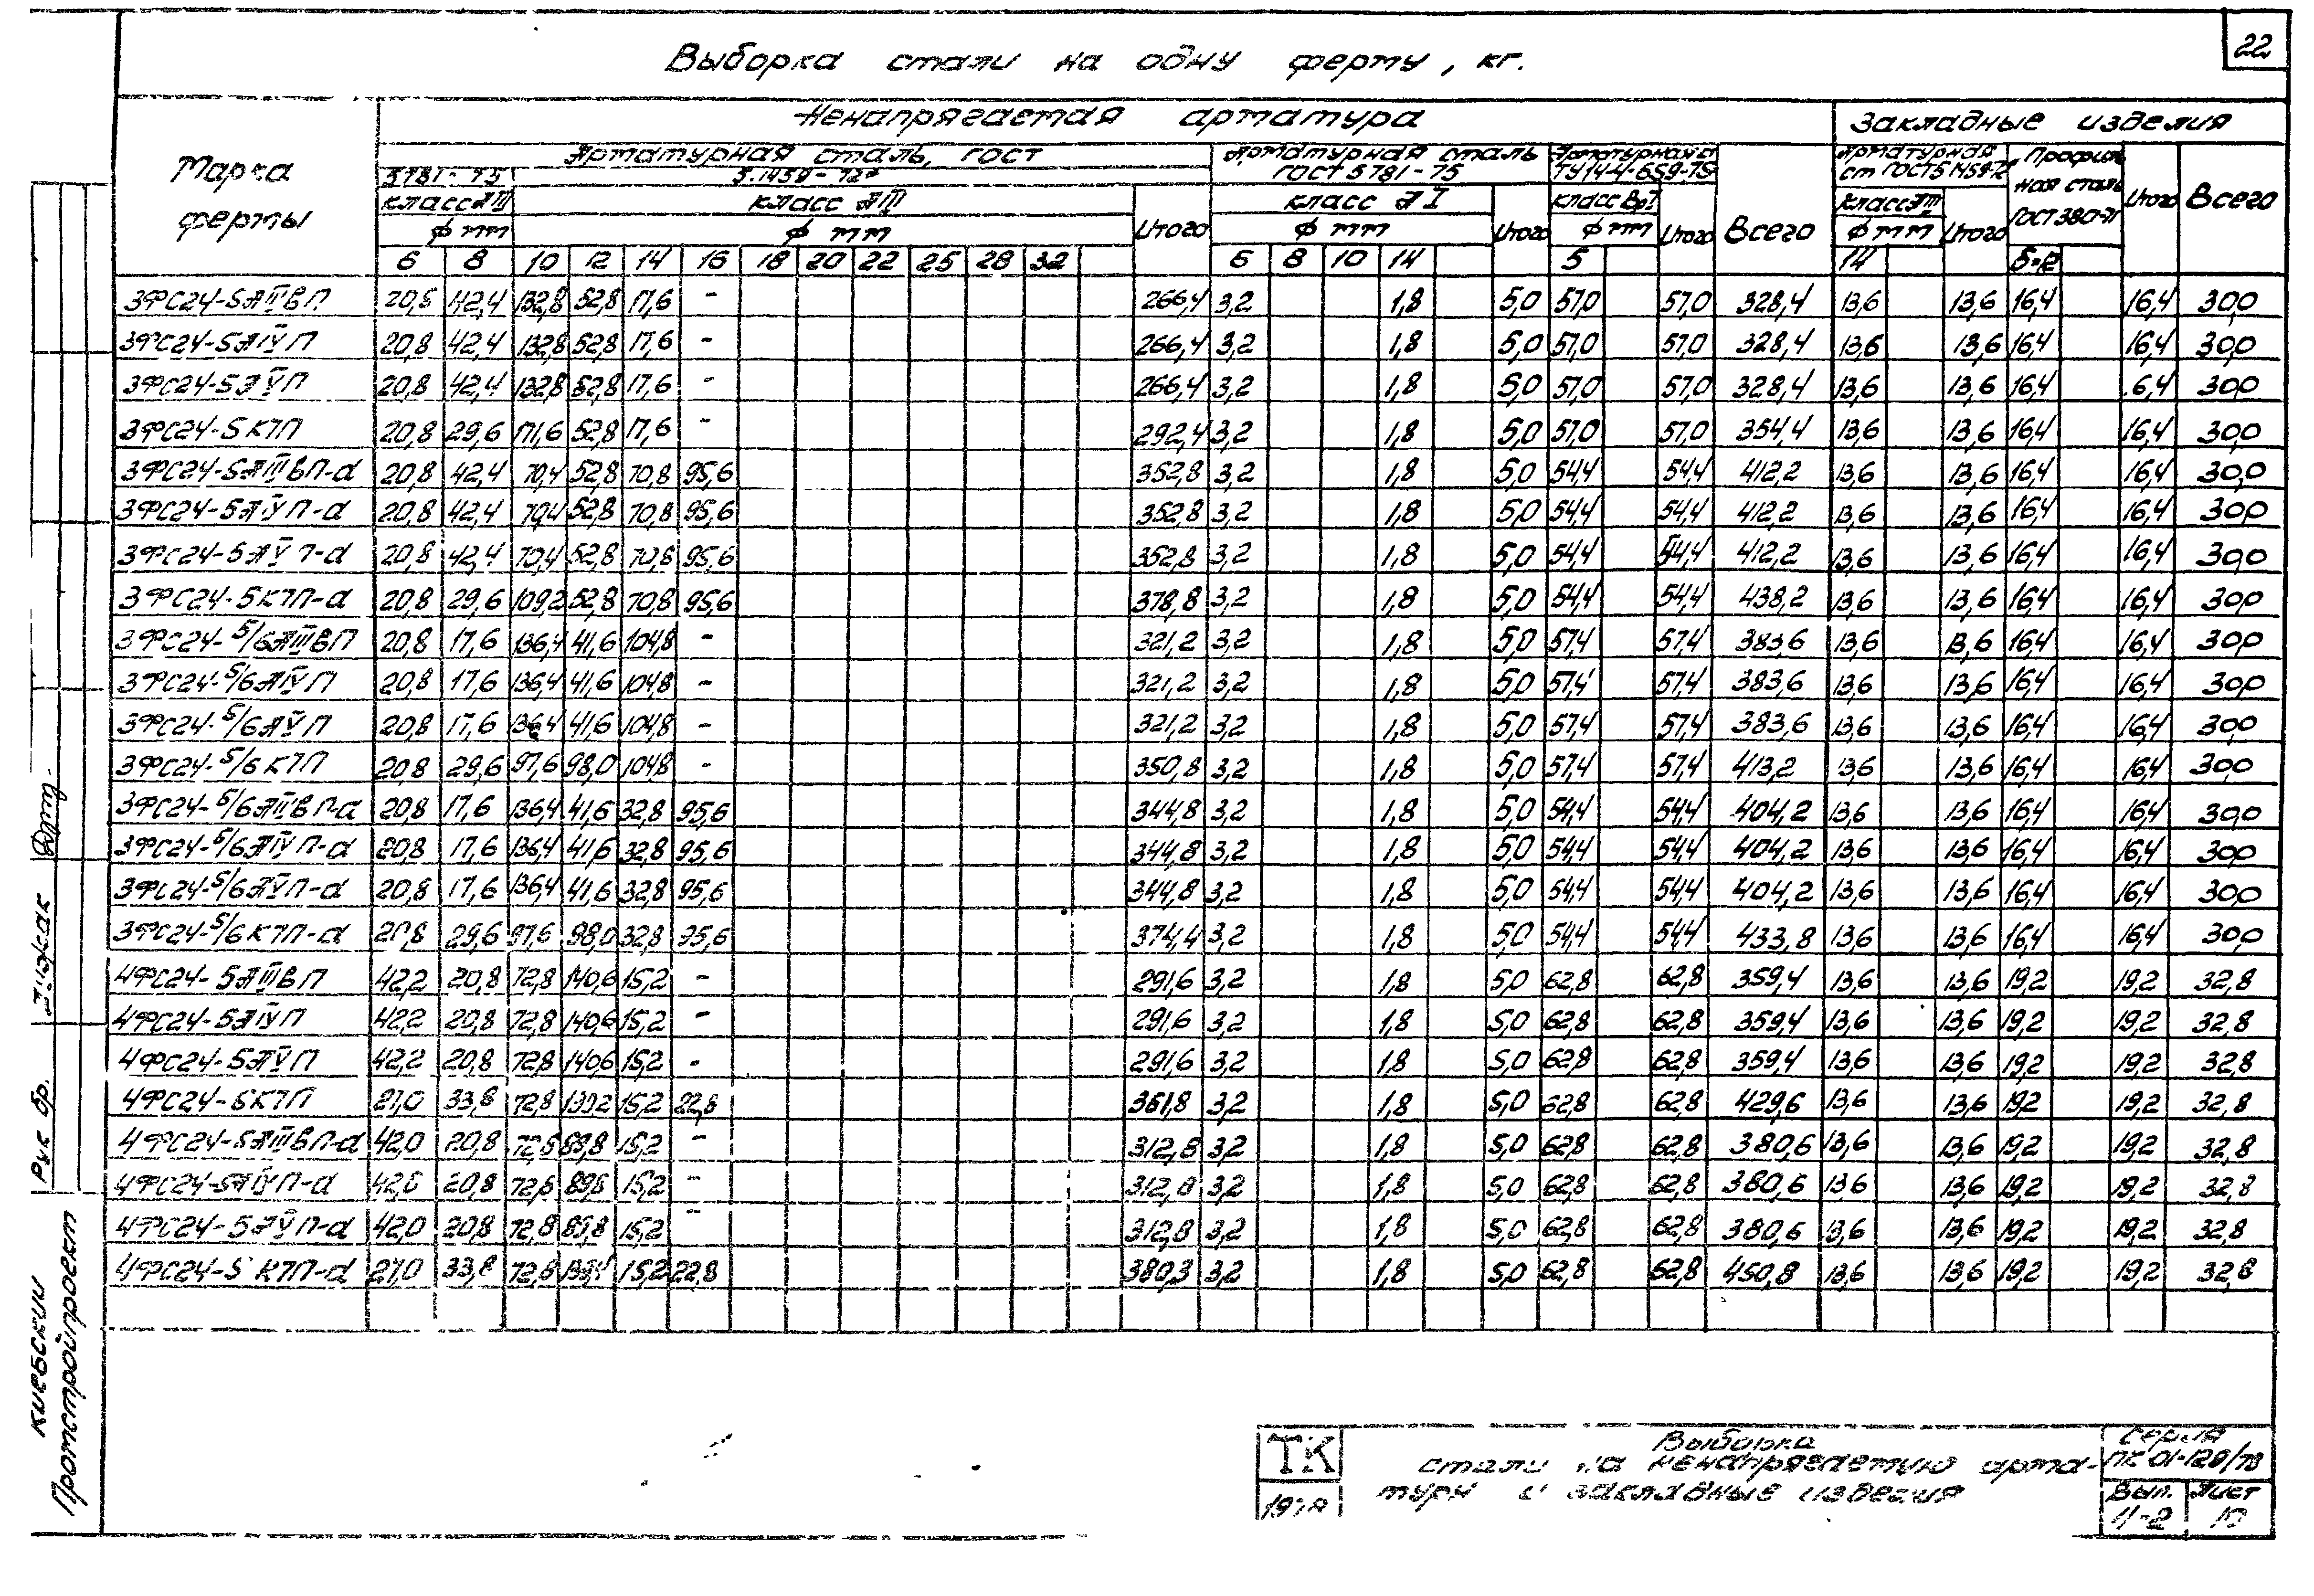 22
Выборка стали на одну ферму, кг.
Марка фермы
Ненапрягаемая арматура
Закладные изделия
Арматурная сталь, ГОСТ
Арматурная сталь ГОСТ 5781-75
ТУ14-4-659-75
Арматурная ст ГОСТ5.1459-72
Профильная сталь ГОСТ380-71
Итого
Всего
5781-75
5.1459-72*
класс АIII
класс АIII
Итого
класс АI
Итого
класс ВрI
Итого
Всего
класс АIII
Итого
ф мм
ф мм
ф мм
ф мм
ф мм
6 8 10 12 14 16 18 20 22 25 28 32 6 8 10 14 5 14
3ФС24-5АIIIвП 20,8 42,4 132,8 52,8 17,6 - 266,4 3,2 1,8 5,0 57,0 57,0 328,4 13,6 13,6 16,4 16,4 30,0
3ФС24-5АIVП 20,8 42,4 132,8 52,8 17,6 - 266,4 3,2 1,8 5,0 57,0 57,0 328,4 13,6 13,6 16,4 16,4 30,0
3ФС24-5АVП 20,8 42,4 132,8 52,8 17,6 - 266,4 3,2 1,8 5,0 57,0 57,0 328,4 13,6 13,6 16,4 6,4 30,0
3ФС24-5К7П 20,8 29,6 171,6 52,8 17,6 - 292,4 3,2 1,8 5,0 57,0 57,0 354,4 13,6 13,6 16,4 16,4 30,0
3ФС24-5АIIIвП-а 20,8 42,4 70,4 52,8 70,8 95,6 352,8 3,2 1,8 5,0 54,4 54,4 412,2 13,6 13,6 16,4 16,4 30,0
3ФС24-5АIVП-а 20,8 42,4 70,4 52,8 70,8 95,6 352,8 3,2 1,8 5,0 54,4 54,4 412,2 13,6 13,6 16,4 16,4 30,0
3ФС24-5АVП-а 20,8 42,4 70,4 52,8 70,8 95,6 352,8 3,2 1,8 5,0 54,4 54,4 412,2 13,6 13,6 16,4 16,4 30,0
3ФС24-5К7П-а 20,8 29,6 109,2 52,8 70,8 95,6 378,8 3,2 1,8 5,0 54,4 54,4 438,2 13,6 13,6 16,4 16,4 30,0
3ФС24-5/6АIIIвП 20,8 17,6 136,4 41,6 104,8 - 321,2 3,2 1,8 5,0 57,4 57,4 383,6 13,6 13,6 16,4 16,4 30,0
3ФС24-5/6АIVП 20,8 17,6 136,4 41,6 104,8 - 321,2 3,2 1,8 5,0 57,4 57,4 383,6 13,6 13,6 16,4 16,4 30,0
3ФС24-5/6АVП 20,8 17,6 136,4 41,6 104,8 - 321,2 3,2 1,8 5,0 57,4 57,4 383,6 13,6 13,6 16,4 16,4 30,0
3ФС24-5/6К7П 20,8 29,6 97,6 98,0 104,8 - 350,8 3,2 1,8 5,0 57,4 57,4 413,2 13,6 13,6 16,4 16,4 30,0
3ФС24-5/6АIIIвП-а 20,8 17,6 136,4 41,6 32,8 95,6 344,8 3,2 1,8 5,0 54,4 54,4 404,2 13,6 13,6 16,4 16,4 30,0
3ФС24-5/6АIVП-а 20,8 17,6 136,4 41,6 32,8 95,6 344,8 3,2 1,8 5,0 54,4 54,4 404,2 13,6 13,6 16,4 16,4 30,0
3ФС24-5/6АVП-а 20,8 17,6 136,4 41,6 32,8 95,6 344,8 3,2 1,8 5,0 54,4 54,4 404,2 13,6 13,6 16,4 16,4 30,0
3ФС24-5/6К7П-а 20,8 29,6 97,6 98,0 32,8 95,6 374,4 3,2 1,8 5,0 54,4 54,4 433,8 13,6 13,6 16,4 16,4 30,0
4ФС24-5АIIIвП 42,2 20,8 72,8 140,6 15,2 - 291,6 3,2 1,8 5,0 62,8 62,8 359,4 13,6 13,6 19,2 19,2 32,8
4ФС24-5АIVП 42,2 20,8 72,8 140,6 15,2 - 291,6 3,2 1,8 5,0 62,8 62,8 359,4 13,6 13,6 19,2 19,2 32,8
4ФС24-5АVП 42,2 20,8 72,8 140,6 15,2 - 291,6 3,2 1,8 5,0 62,8 62,8 359,4 13,6 13,6 19,2 19,2 32,8
4ФС24-5К7П 27,0 33,8 72,8 15,2 22,8 361,8 3,2 1,8 5,0 62,8 62,8 429,6 13,6 13,6 19,2 19,2 32,8
4ФС24-5АIIIвП-а 42,0 20,8 72,8 89,8 15,2 - 312,8 3,2 1,8 5,0 62,8 62,8 380,6 13,6 13,6 19,2 19,2 32,8
4ФС24-5АIVП-а 20,8 72,8 89,8 15,2 - 3,2 1,8 5,0 62,8 62,8 380,6 13,6 13,6 19,2 19,2 32,8
4ФС24-5АVП-а 42,0 20,8 72,8 89,8 15,2 - 312,8 3,2 1,8 5,0 62,8 62,8 380,6 13,6 13,6 19,2 19,2 32,8
4ФС24-5 К7П-а 27,0 33,8 72,8 15,2 22,8 3,2 1,8 5,0 62,8 62,8 450,8 13,6 13,6 19,2 19,2 32,8
Рук бр.
Киевский
Промстройпроект
ТК
Выборка
стали на ненапрягаемую арма-
туру и закладные изделия
Серия
ПК-01-129/78
Вып.
II-2
Лист
10